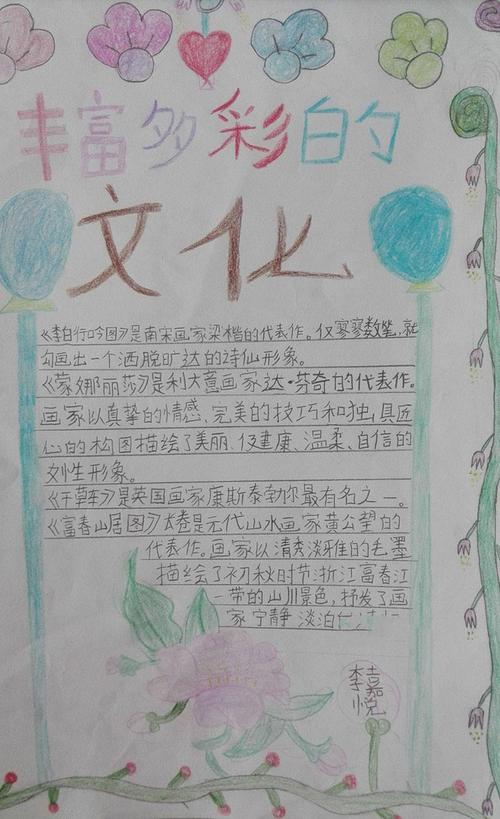 丰富多彩的
文化
《李白行吟图》是南宋画家梁楷的代表作。仅寥寥数笔，就
勾画出一个洒脱旷达的诗仙形象。
《蒙娜丽莎》是利大意画家达·芬奇的代表作。
画家以真挚的情感、完美的技巧和独具匠
心的构图描绘了美丽、健康、温柔、自信的
女性形象。
《干草车》是英国画家康斯泰勃尔最有名之一。
《富春山居图》长卷是元代山水画家黄公望的
代表作。画家以清秀淡雅的毛墨
描绘了初秋时节浙江富春江
一带的山川景色，抒发了画
家宁静淡泊
李嘉悦